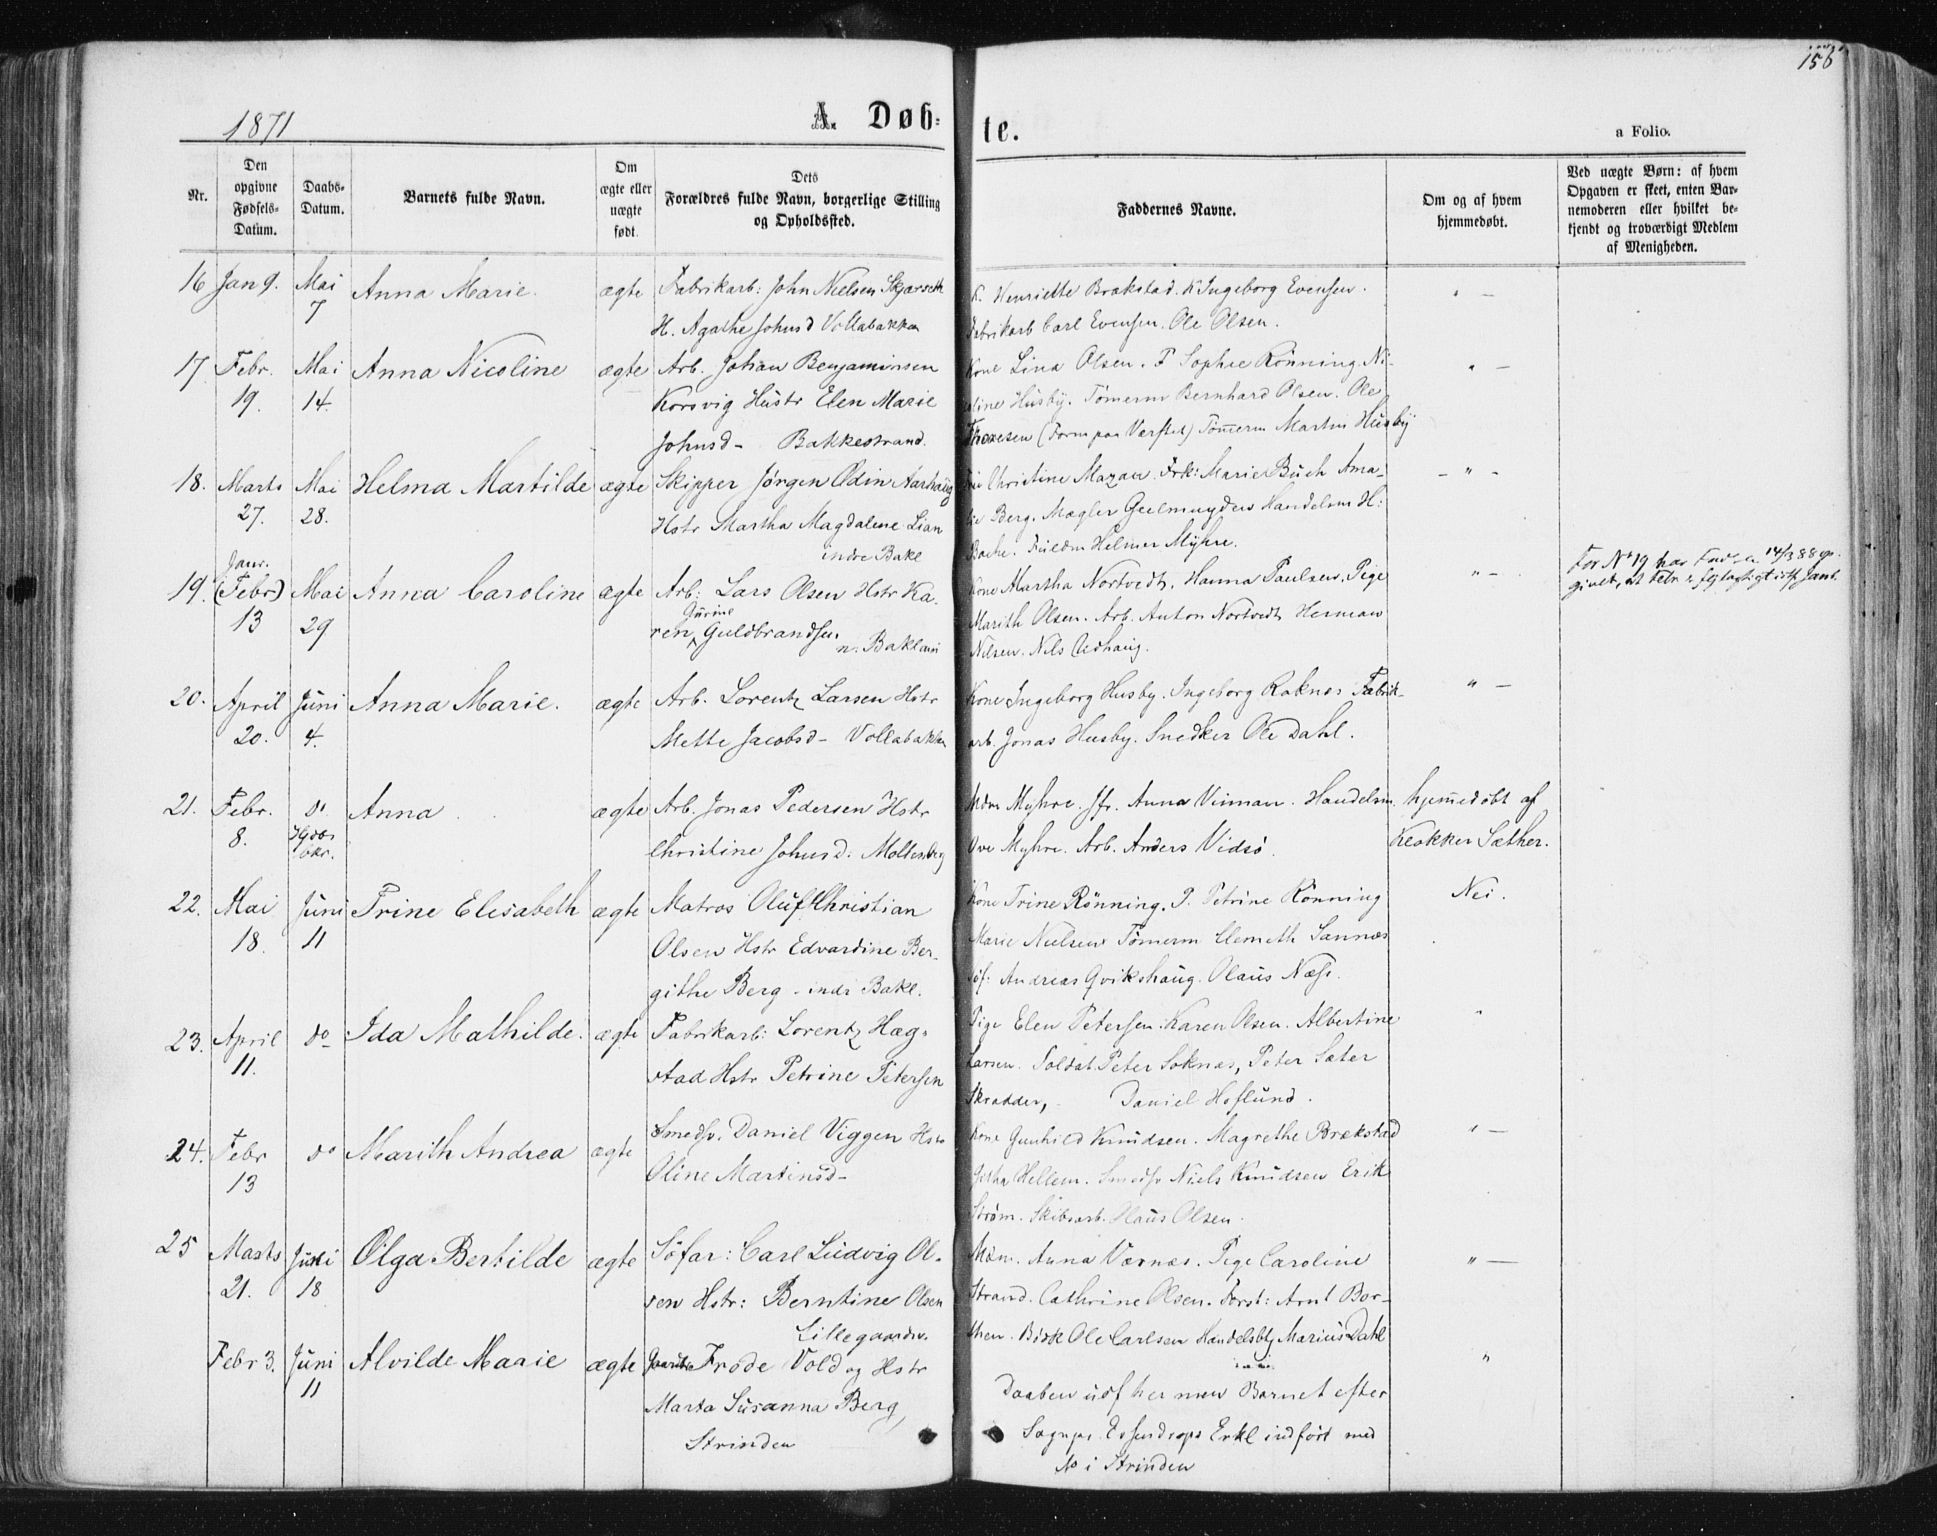 156
1871
A. Døb-
te.
a Folio.
Nr.
Den opgivne Fødsels-Datum.
Daabs-Datum.
Barnets fulde Navn.
Om ægte eller uægte født.
Dets Forældres fulde Navn, borgerlige Stilling og Opholdssted.
Faddernes Navne.
Om og af hvem hjemmedøbt.
Ved uægte Børn: af hvem Opgaven er skeet, enten Barnemoderen eller hvilket bekjendt og troværdigt Medlem af Menigheden.
16 Jan 9. Mai Anna Marie. ægte Fabrikarb: John Nielsen Skjærseth K. Henriette Brækstad. K Ingeborg Evensen. " —
7 H. Agathe Johnsd Vollabakken Fabrikarb Carl Evensen. Ole Olsen.
17 Febr. Mai Anna Nicoline ægte Arb. Johan Benjaminsen Kone Lina Olsen. P Sophie Rönning Ni- " —
19. 14. Korsvig Hustr Elen Marie coline Husby. Tömerm Bernhard Olsen. Ole
Johnsd - Bakkestrand. Thoresen (Form paa Værftet) Tömerm Martin Husby
18. Marts Mai Helma Martilde ægte Skipper Jørgen Odin Aarhaug Christine Mazau. Frk: Marie Buch Ama- - " -
27. 28. Hstr Martha Magdalene Lian lie Berg. Mægler Geelmuyden Handelsm H:
indre Bakl Bache. Fuldm Helmer Myhre.
Janr.
19. (Febr) Mai Anna Caroline ægte Arb: Lars Olsen Hstr Ka- Kone Martha Nortvedt. Hanna Paulsen. Pige " - For No 19 har Fad. 14/3 88 op-
13 29 ren Gurine Guldbrandsen Marith Olsen. Arb. Anton Nortvedt Herman givet, at Febr. fejlagtigt Jan.
n. Baklan Nilsen. Nils Udhaug.
20. April Juni Anna Marie. ægte Arb. Lorentz Larsen Hstr Kone Ingeborg Husby. Ingeborg Roknes Fabrik- " —
20. 4. Mette Jacobsd - Vollabakken arb. Jonas Husby. Snedker Ole Dahl.
21. Febr. do Anna ægte Arb. Jonas Pedersen Hstr Mdm Myhre. Jfr. Anna Vinman. Handelsm. hjemmedøbt af
8. Christine Johnsd: Mollenberg Ove Myhre. Arb. Anders Vidsö. Klokker Sæther.
22. Mai Juni Trine Elisabeth ægte Matros Oluf Christian Kone Trine Rönning. P. Petrine Rönning Nei.
18. 11 Olsen Hstr Edvardine Ber- Marie Nielsen Tömerm Clemeth Sannæs
githe Berg - indr Bakl. Söf: Andreas Qvikshaug. Olaus Næss.
23. April do Ida Mathilde. ægte Fabrikarb: Lorentz Hæg- Pige Elen Petersen. Karen Olsen. Albertine "
11. stad Hstr Petrine Petersen Larsen. Soldat Peter Soknæs, Peter Sæter
Skrædder, Daniel Hoflund.
24. Febr do Marith Andrea ægte Smedsv. Daniel Viggen Hstr Kone Gunhild Knudsen. Magrethe Brækstad " —
13 Oline Martinsd- Hellem. Smedsv Niels Knudsen Erik
Strøm. Skibsarb. Hans Olsen.
25 Marts Juni Olga Bertilde ægte Söfar: Carl Ludvig Ol- Mdm. Anna Værnes. Pige Caroline " —
21. 18 sen Hstr: Berntine Olsen Strand. Cathrine Olsen. Forst: Arnt Bor-
Lillegaardsv. then. Ole Carlsen Handelsbtj Marius Dahl
Febr 3. Juni Alvilde Marie ægte Frode Vold og Hstr "
11 Marta Susanna Berg, Daaben udf her men Barnet efter
Strinden Sognepr. Essendrops Erkl indført med
No i Strinden